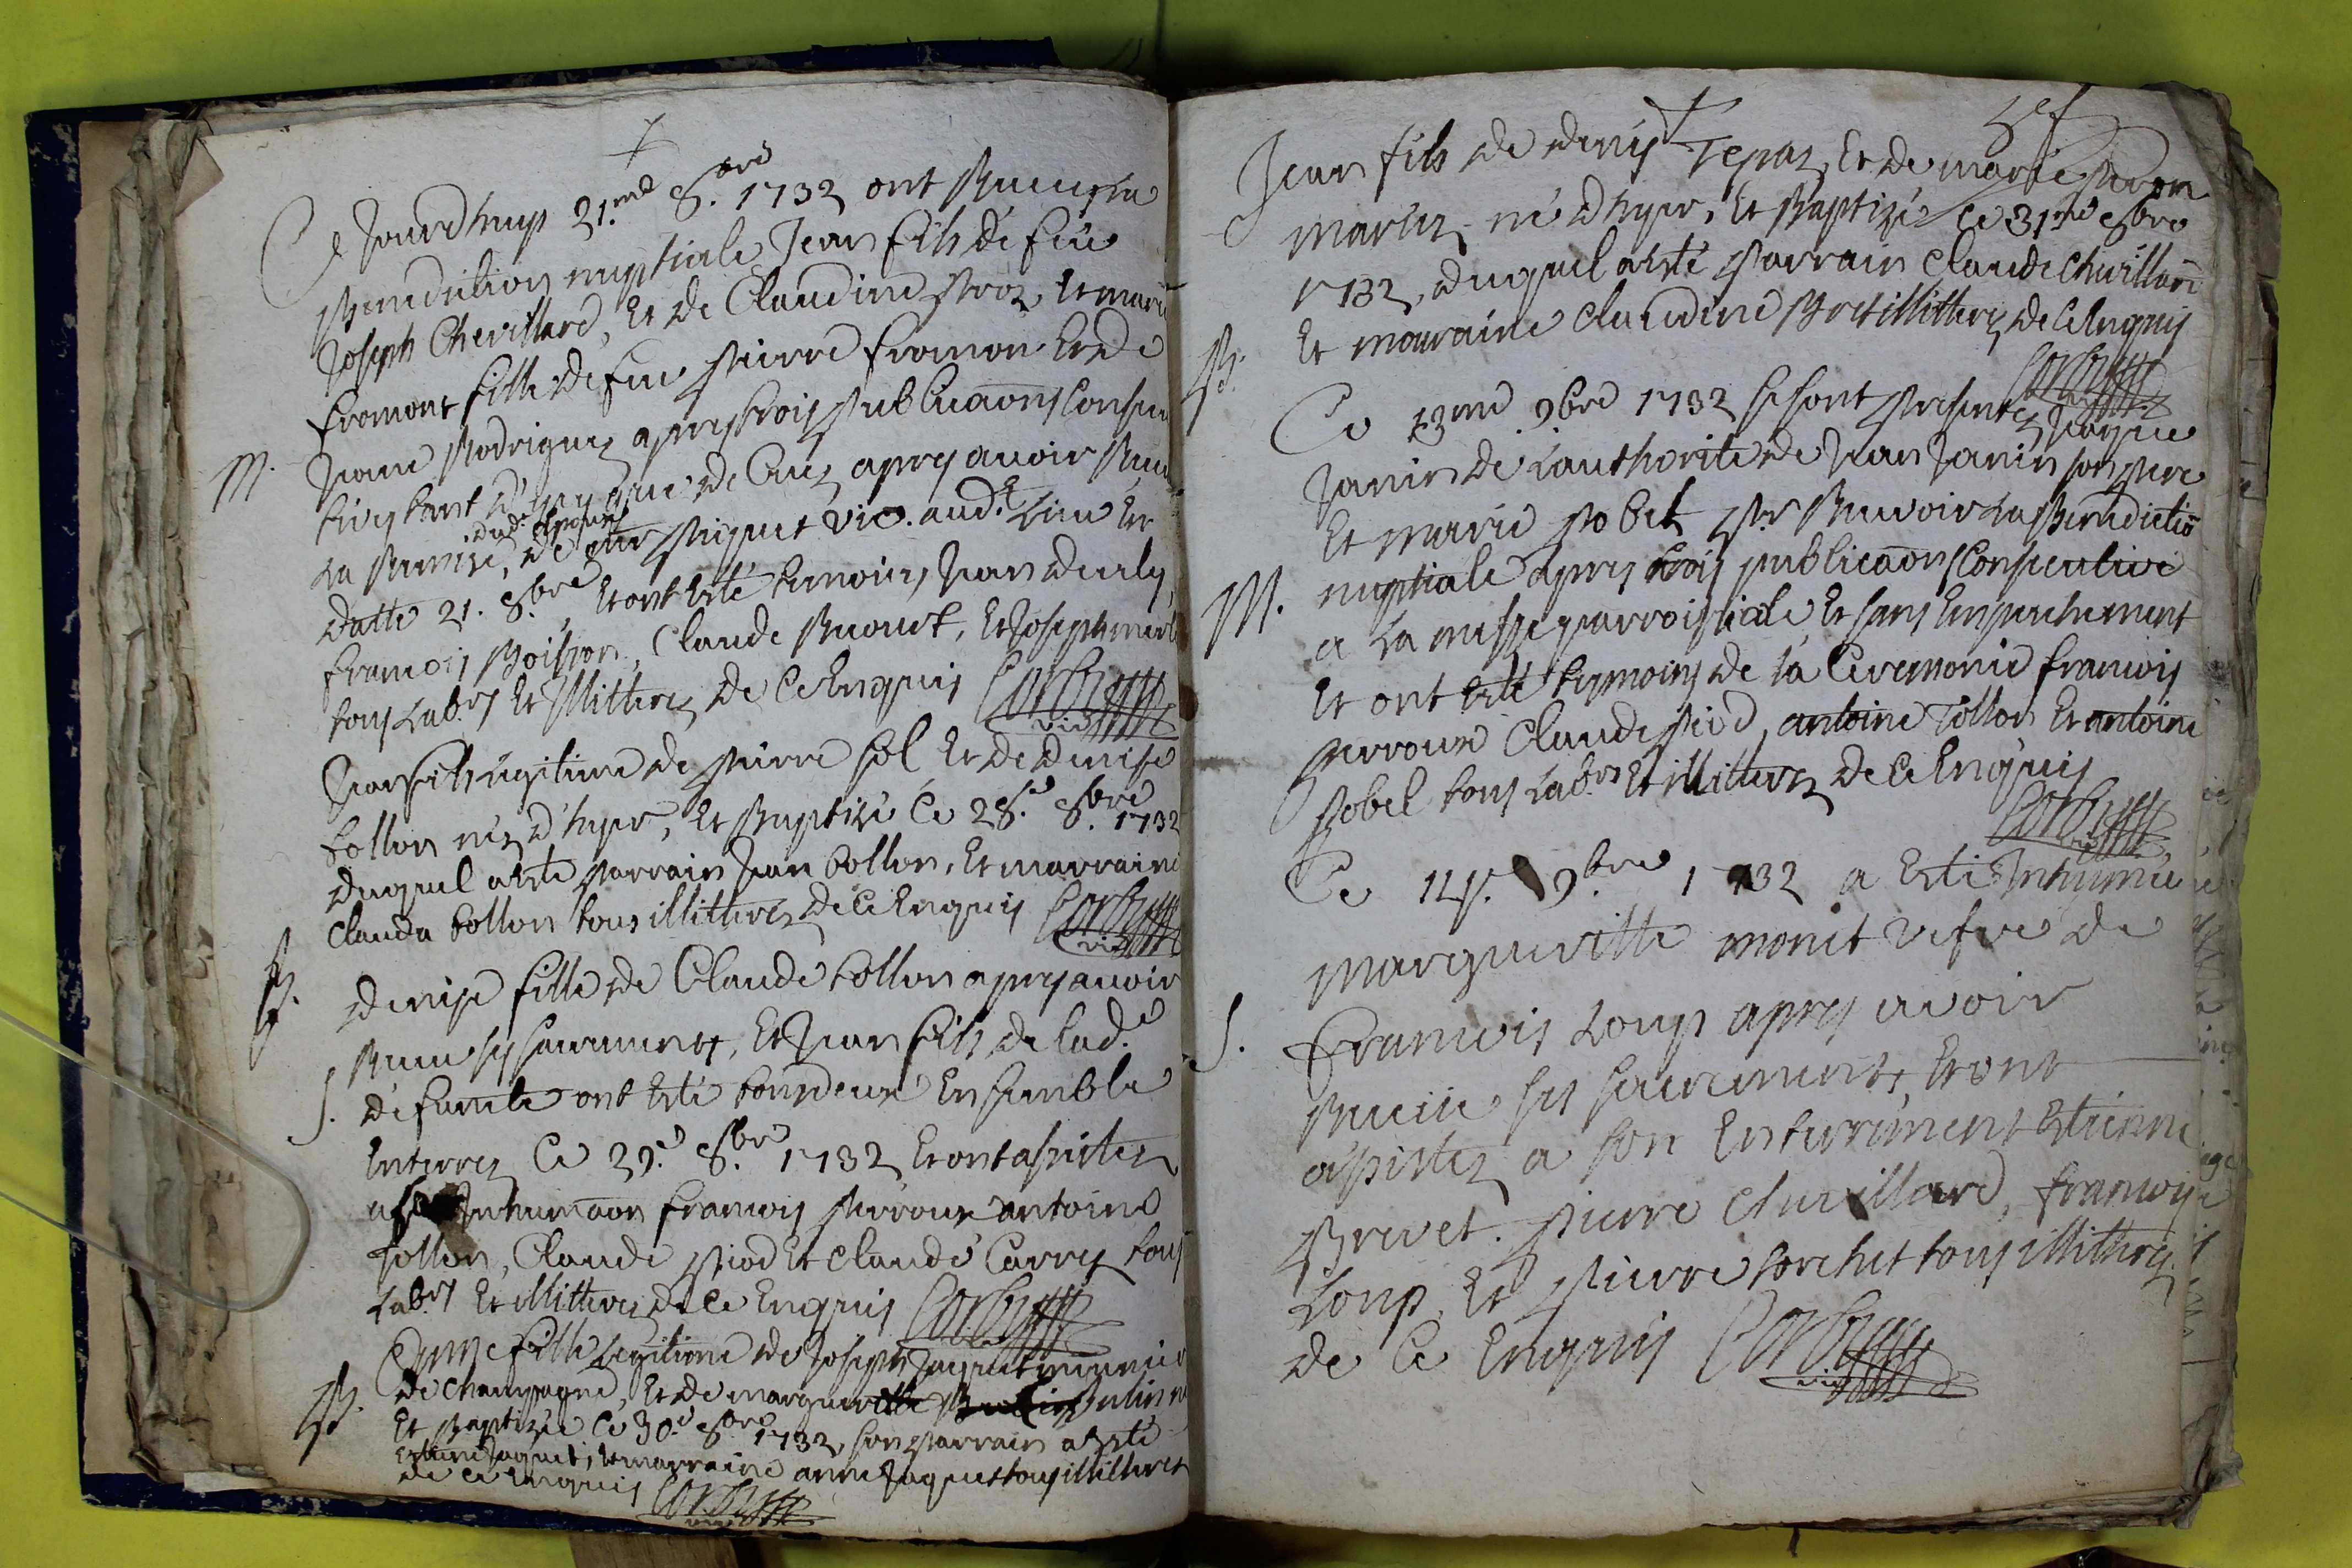 Ce Jourdhuy 21.me 8.bre 1732 ont Receu La
Benediction nuptiale Jean fils de feu
Joseph Chevillard, Et de Claudine Et marie
fromont fille de feu pierre fromon Et de
M. Jeane Rodriguez apres trois publicaons Consecu
tives tant apres avoir Receu
La Remise, de piquet vic. aud.t Lieu Et
dud. Espoux
datte 21. 8.bre Et ont Esté temoins Jean
francois Boisson, Claude Et Joseph
tous Lab.rs Et illitteres de Ce Enquis Corbet
vic
Jean fils Legitime de pierre sol Et de denise
tollon né d'hyer, Et Baptisé Ce 28.e 8.bre 1732
duquel a Esté parrain Jean tollon, Et marraine
Clauda tollon tous illitteres de Ce Enquis
vic
B. denise fille de Claude tollon apres avoir
Receu ses sacrements, Et Jean fils de Lad.e
S. defuncte ont Esté tous deux Ensemble
Enterrez Ce 29.e 8.bre 1732 Et ont assistez
a Inhumaon francois perroux antoine
tollon, Claude piod Et Claude Carrez tous
Lab.rs Et illitteres de Ce Enquis
Anne fille Legitime de Joseph Jaquet munier
B. de Champagne, Et de margueritte
Et Baptizée Ce 30.e 8.bre 1732, son parrain a Esté
Jaquet, Et marraine anne Jaquet tous illitteres
de Ce Enquis
vic
Jean fils de denis Et de marie
mariez né d'hyer, Et Baptizé Ce 31.me 8bre
1732, duquel a Esté parrain Claude Chevillard
B. Et marraine Claudine illitteres de Ce Enquis
Ce 9bre 1732 se sont presentez
Janin de L'authorite de Jean Janin son pere
Et Marie pobel p.r Recevoir La Benedictio
M. nuptiale apres trois publicaons Consecutive
a La messe parroissiale Et sans Empechement
Et ont Esté tesmoins de La Ceremonie francois
perroux Claude piod, antoine tollon Et antoine
pobel tous Lab.rs Et illitteres de Ce Enquis
Ce 9.bre 1732 a Esté Inhumée
margueritte monet vefve de
S. francois Loup apres avoir
Receue ses sacrements, Et ont
assistez a son Enterrement Estienne
Brevet. pierre Chevillard, francois
Loup, Et pierre tous illitteres
de Ce Enquis
vic